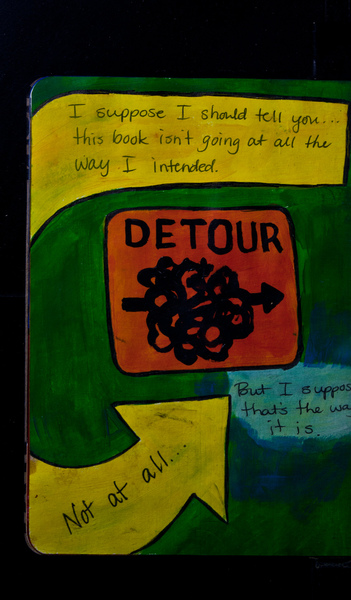 I suppose I should tell you...
this book isn't going at all the
way I intended.
DETOUR
But I
that's the
it is.
Not at all...